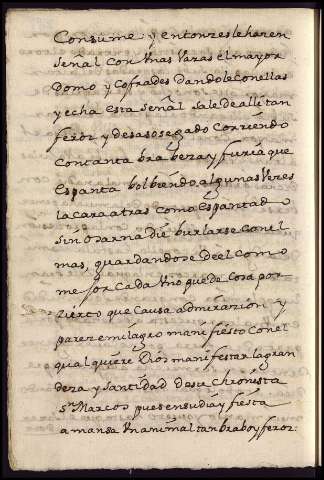 Consume y entonzes le hazen
señal con unas Varas el mayor
Domo y Cofrades dandole con ellas
y echa esta señal sale de alli tan
feroz y desasosegado corriendo
con tanta brabeza y furia que
espanta bolbiendo algunas Vezes
la cara atras como espantado
sin osar nadie burlarse con el
mas, guardandose de el como
mejor cada uno puede cosa por
zierto que causa admirazion y
pareze milagro manifiesto con el
qual quiere Dios manifestar la gran
deza y santidad de su chronista
sn Marcos pues en su dia y fiesta
amansa un animal tan brabo y feroz.